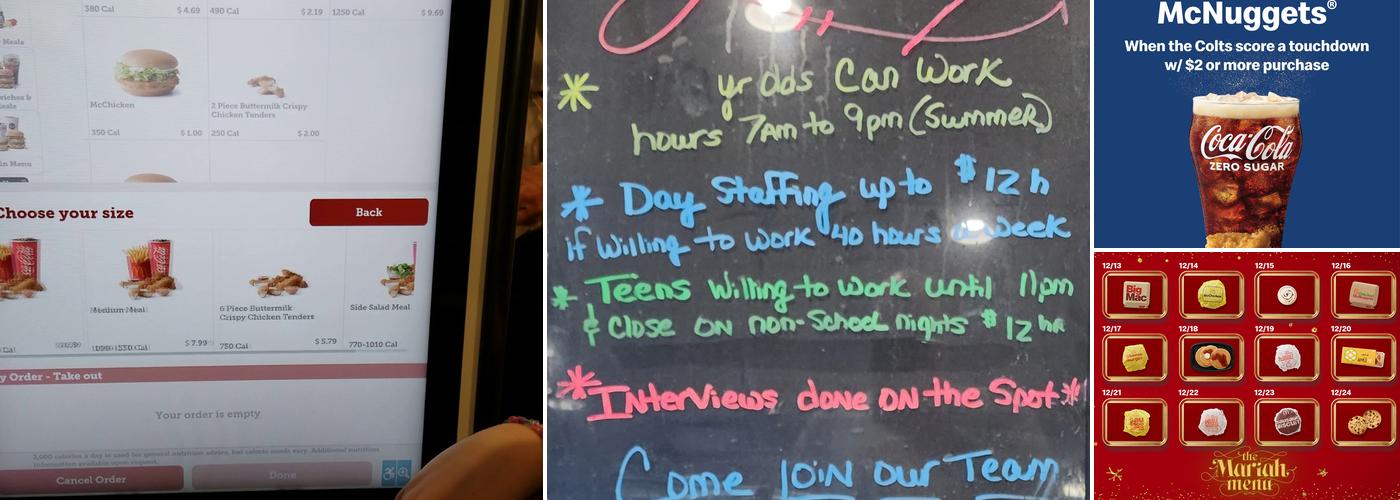 380 Cal $ 4.69 490 Cal $ 2.19 1250 Cal $ 9.69
Meals
McChicken
2 Piece Buttermilk Crispy
Chicken Tenders
350 Cal $ 1.00 250 Cal $ 2.00
Menu
Choose your size
Back
6 Piece Buttermilk
Crispy Chicken Tenders
Side Salad Meal
Cal $ 7.99 750 Cal $ 5.79 770-1010 Cal
y Order - Take out
Your order is empty
2,000 calories a day is used for general nutrition advice, but calorie needs vary. Additional nutrition
information available upon request.
Cancel Order
Done
yr olds Can Work
hours 7am to 9pm (Summer)
* Day Staffing up to $12 h
if willing to work 40 hours a week
* Teens willing to work until 11pm
& close on non-School nights $12 hr
* Interviews done on the Spot *
Come Join our Team
McNuggets®
When the Colts score a touchdown
w/ $2 or more purchase
Coca-Cola
ZERO SUGAR
12/13 12/14 12/15 12/16
Big
Mac
12/17 12/18 12/19 12/20
12/21 12/22 12/23 12/24
the
Mariah
menu